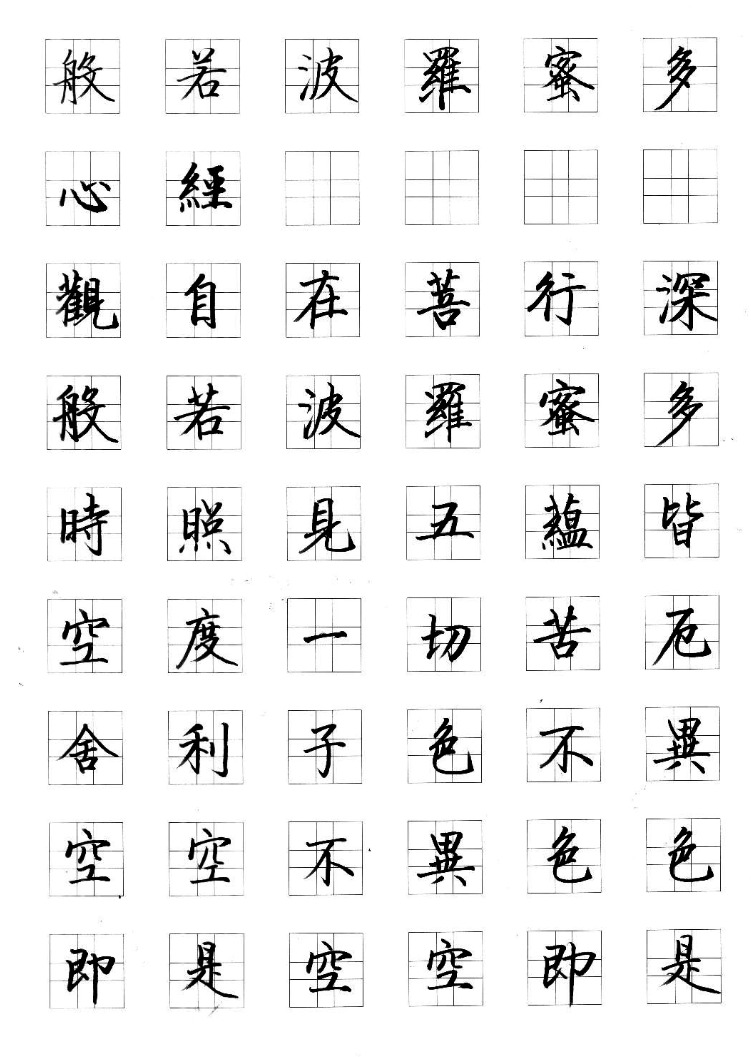 般若波羅蜜多
心經
觀自在菩行深
般若波羅蜜多
時照見五蘊皆
空度一切苦厄
舍利子色不異
空空不異色色
即是空空即是